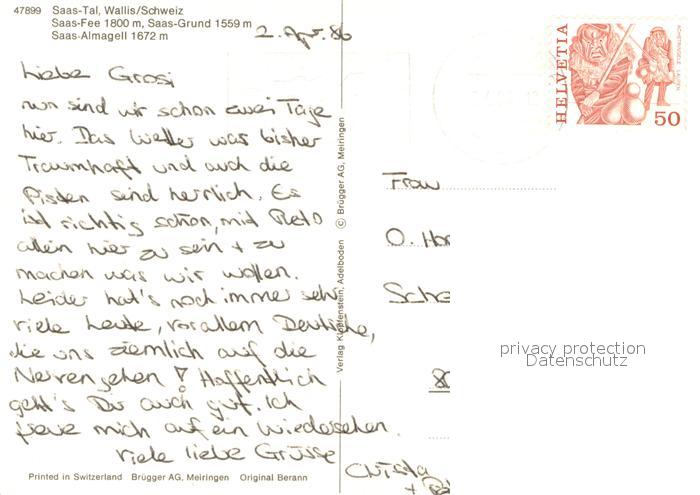 47899 Saas-Tal, Wallis/Schweiz
Saas-Fee 1800 m, Saas-Grund 1559 m
Saas-Almagell 1672 m
2. Apr. 86
Liebe Grosi
nun sind wir schon zwei Tage
hier. Das Wetter war bisher
Traumhaft und auch die
Pisten sind herrlich. Es
ist richtig schön, mit Reto
allein hier zu sein + zu
machen was wir wollen.
Leider hat's noch immer sehr
viele Leute, vor allem Deutsche,
die uns ziemlich auf die
Nerven gehen! Hoffentlich
geht's Dir auch gut. Ich
freue mich auf ein Wiedersehen.
Viele liebe Grüsse
Christa
+
Printed in Switzerland Brügger AG, Meiringen Original Berann
Verlag Klopfenstein, Adelboden © Brügger AG, Meiringen
HELVETIA
50
Frau
O. Hor
Sche
80
privacy protection
Datenschutz